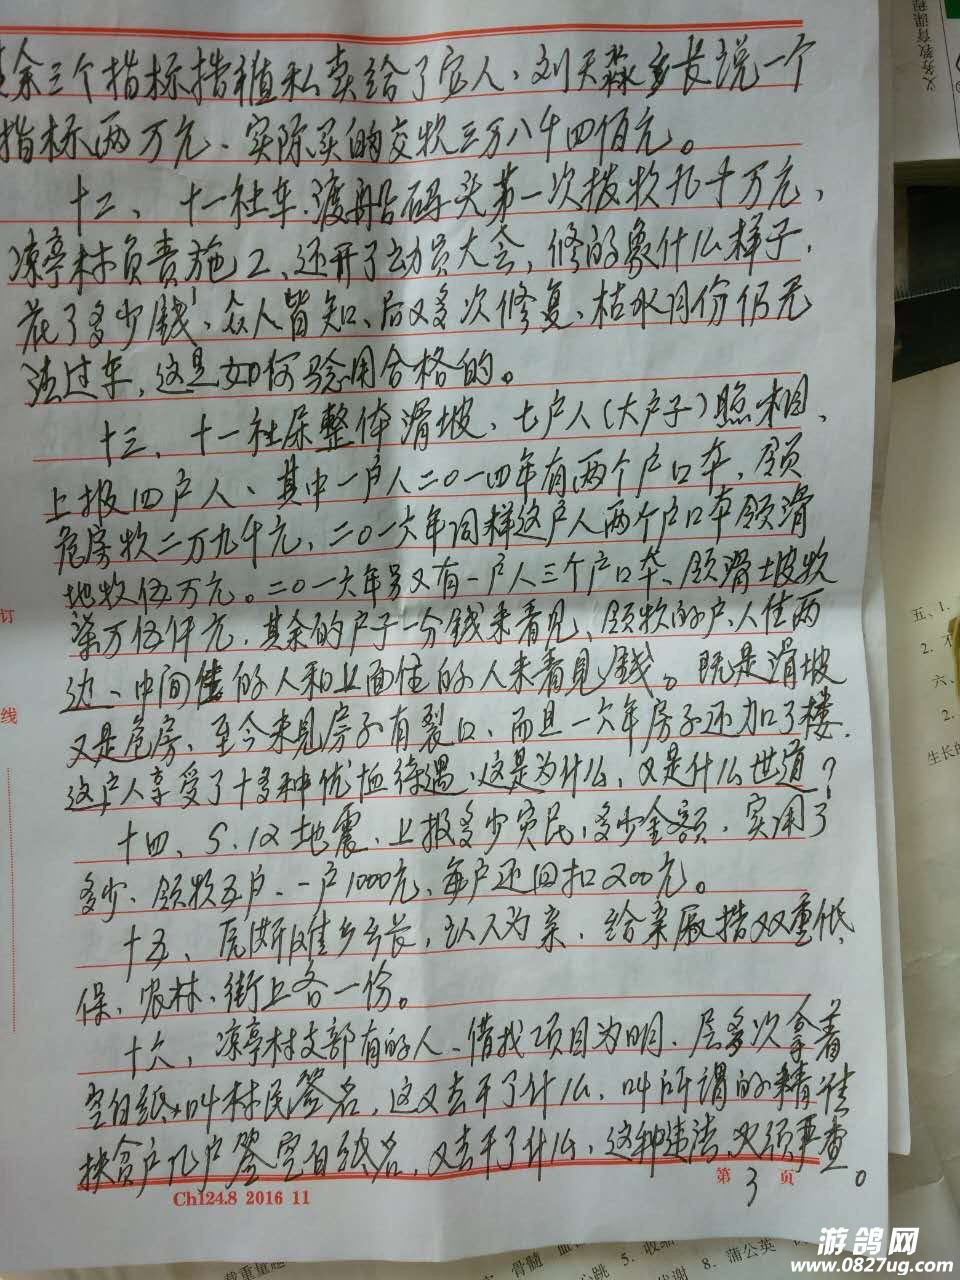 余三个指标措植私卖给了它人、刘天淼乡长说一个
指标两万元、实际买的交款三万八千四佰元。
十二、十一社车.渡船码头第一次拨款九十万元、
凉亭村负责施工、还开了动员大会,修的象什么样子.
花了多少钱、众人皆知、后又多次修复、枯水月份仍无
法过车,这是如何验用合格的。
十三、十一社尿整体滑坡、七户人(大户子)照相、
上报四户人、其中一户人二〇一四年有两个户口本,领
危房款二万九千元、二〇一六年同样这户人两个户口本领滑
地款伍万元。二〇一六年另又有一户人三个户口本、领滑坡款
柒万伍仟元,其余的户子一分钱未看见、领款的户人住两
边、中间住的人和上面住的人未看見钱。既是滑坡
又是危房、至今未见房子有裂口、而且一六年房子还加了楼.
这户人享受了十多种优恤待遇、这是为什么,又是什么世道?
十四、5.12地震、上报多少灾民,多少金额,实用了
多少、领款五户、一户1000元、每户还回扣200元。
十五、原 乡长,认人为亲.给亲 措双重低
保、农林、街上各一份。
十六、凉亭村支部有的人、借找项目为明、层多次拿着
空白纸叫林民签名,这又去干了什么,叫所谓的精准
扶贫户几户签空白纸名,又去干了什么,这种违法,必须严查。
Ch124.8 2016 11
第 3 页
订
线
义务教育课程
五、1.
2.
六、
2.
生长的
载重量
骨髓
心跳 5. 收缩
8. 蒲公英
游鸽网
www.0827ug.com